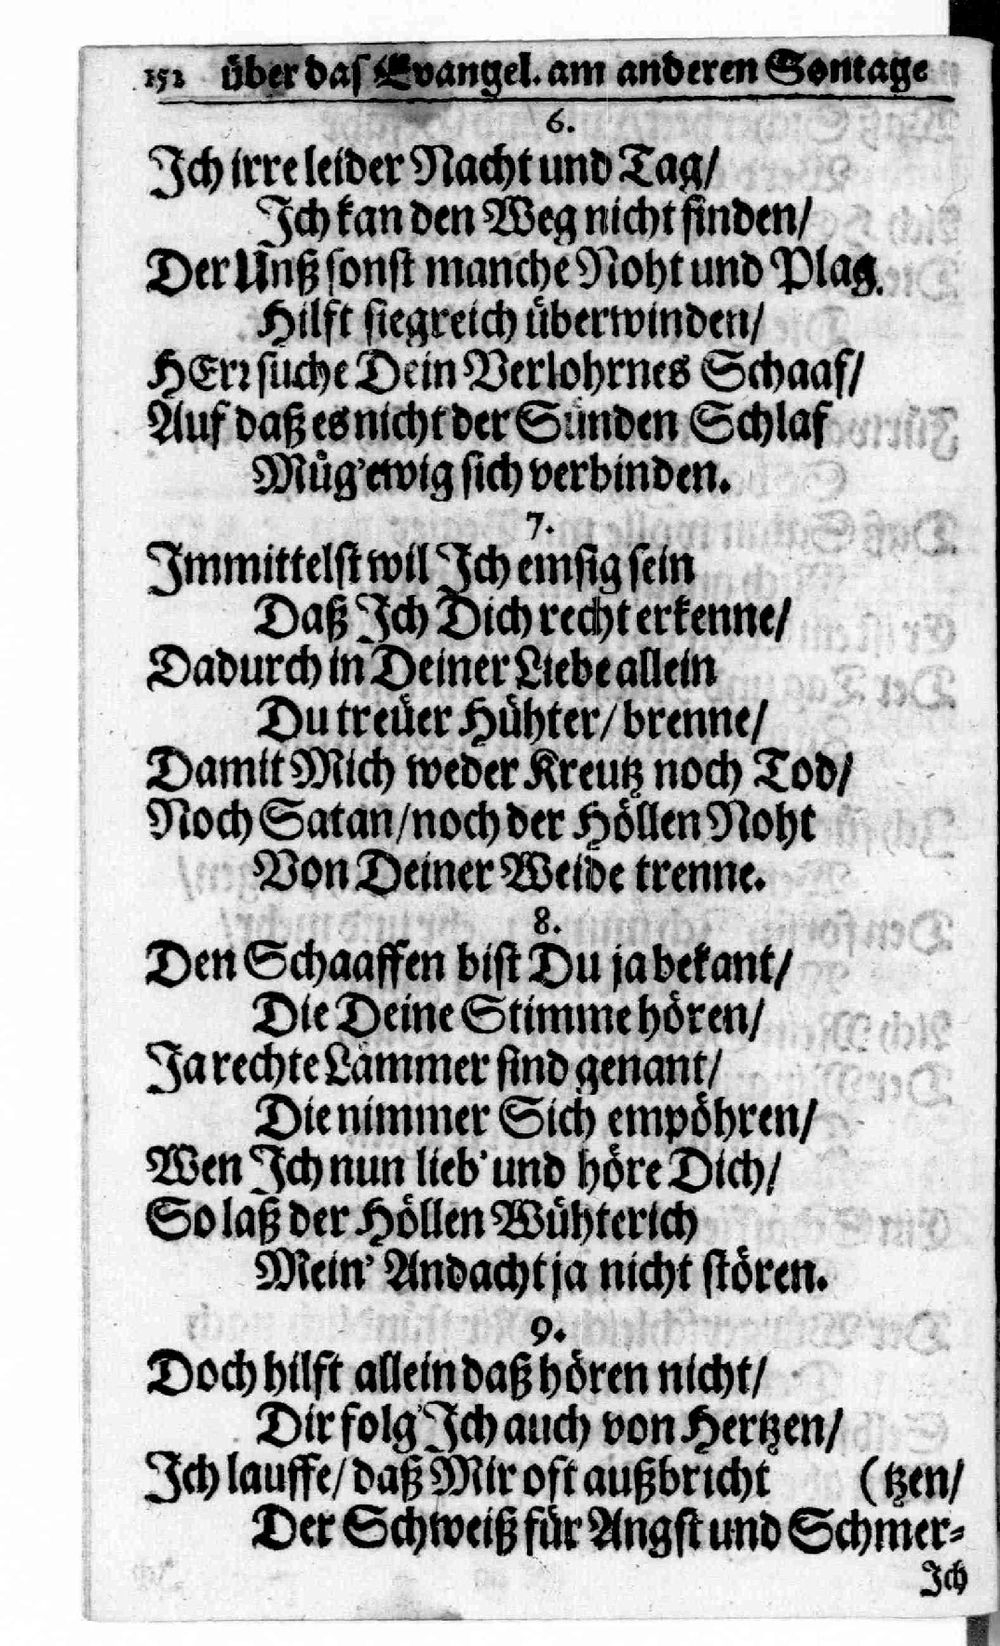 152 über das Evangel. am anderen Sontage
6.
Ich irre leider Nacht und Tag/
Ich kan den Weg nicht finden/
Der Unß sonst manche Noht und Plag.
Hilft siegreich überwinden/
HErr suche Dein Verlohrnes Schaaf/
Auf daß es nicht der Sünden Schlaf
Müg' ewig sich verbinden.
7.
Immittelst wil Ich emsig sein
Daß Ich Dich recht erkenne/
Dadurch in Deiner Liebe allein
Du treüer Hühter/ brenne/
Damit Mich weder Kreutz noch Tod/
Noch Satan/ noch der Höllen Noht
Von Deiner Weide trenne.
8.
Den Schaaffen bist Du ja bekant/
Die Deine Stimme hören/
Ja rechte Lämmer sind genant/
Die nimmer Sich empöhren/
Wen Ich nun lieb' und höre Dich/
So laß der Höllen Wühterich
Mein' Andacht ja nicht stören.
9.
Doch hilft allein daß hören nicht/
Dir folg' Ich auch von Hertzen/
Ich lauffe/ daß Mir oft außbricht (tzen/
Der Schweiß für Angst und Schmer-
Ich